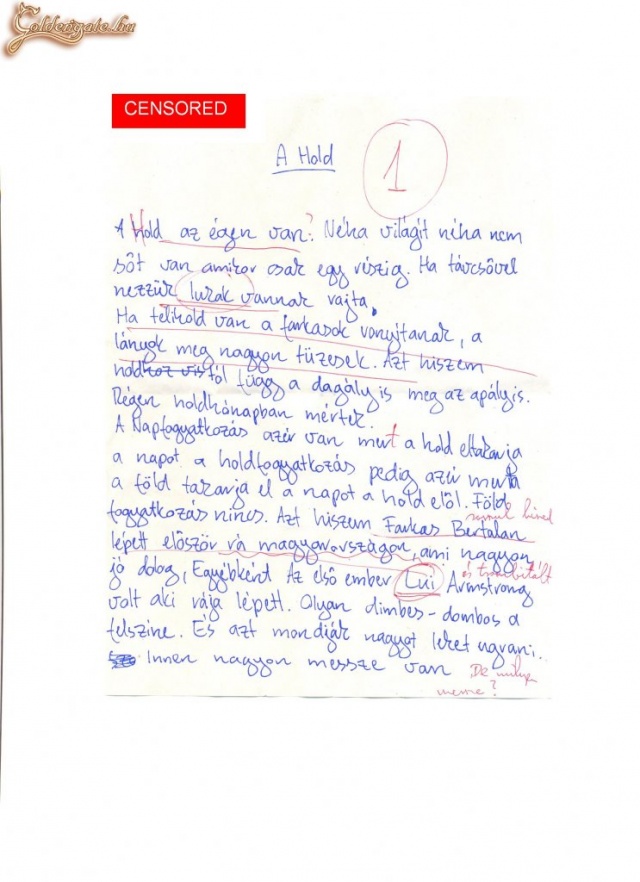 Goldengate.hu
CENSORED
A Hold
1
A Hold az égen van? Néha világít néha nem
sőt van amikor csak egy részig. Ha távcsővel
nezzük lukak vannak rajta.
Ha telihold van a farkasok vonyítanak, a
lányok meg nagyon tüzesek. Azt hiszem
függ a dagály is meg az apály is.
Régen holdhónapban mértek.
A Napfogyatkozás azér van mert a hold eltakarja
a napot a holdfogyatkozás pedig azér mert
a föld takarja el a napot a hold elől. Föld
fogyatkozás nincs. Azt hiszem Farkas Bertalan
lépett először rá magyarországon, ami nagyon
és trombitált
jó dolog, Egyébként Az első ember Lui Armstrong
volt aki rája lépett. Olyan dimbes-dombos a
felszine. És azt mondják nagyot lehet ugrani..
Innen nagyon messze van De milyen
messze?